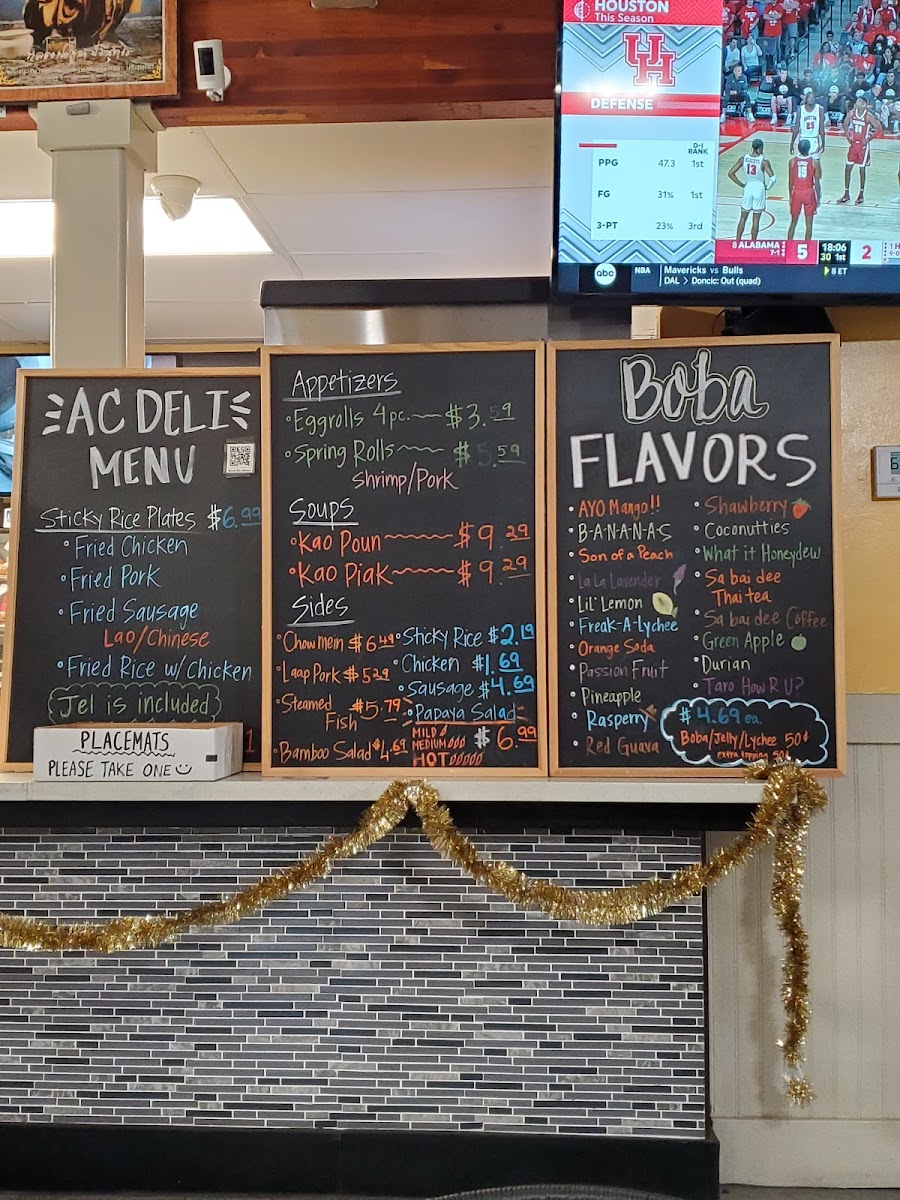 HOUSTON
This Season
UH
DEFENSE
D-I
RANK
PPG 47.3 1st
FG 31% 1st
3-PT 23% 3rd
8 ALABAMA 7-1 5 18:06 30 1st 2
abc NBA Mavericks vs Bulls 8 ET
DAL > Doncic: Out (quad)
AC DELI
MENU
Sticky Rice Plates $6.99
•Fried Chicken
•Fried Pork
•Fried Sausage
Lao/Chinese
•Fried Rice w/ Chicken
Jel is included
PLACEMATS
PLEASE TAKE ONE
Appetizers
•Eggrolls 4pc. $3.59
•Spring Rolls $5.59
Shrimp/Pork
Soups
•Kao Poun $9.29
•Kao Piak $9.29
Sides
•Chowmein $6.49
•Laap Pork $5.29
•Steamed Fish $5.79
•Bamboo Salad $4.69
•Sticky Rice $2.19
•Chicken $1.69
•Sausage $4.69
•Papaya Salad
MILD
MEDIUM
HOT
$6.99
Boba
FLAVORS
•AYO Mango!!
•B-A-N-A-N-A-S
•Son of a Peach
•La La Lavender
•Lil' Lemon
•Freak-A-Lychee
•Orange Soda
•Passion Fruit
•Pineapple
•Rasperry
•Red Guava
•Shawberry
•Coconutties
•What it Honeydew
•Sa bai dee
Thai tea
•Sa bai dee Coffee
•Green Apple
•Durian
•Taro How R U?
$4.69 ea.
Boba/Jelly/Lychee 50¢
extra topping 50¢